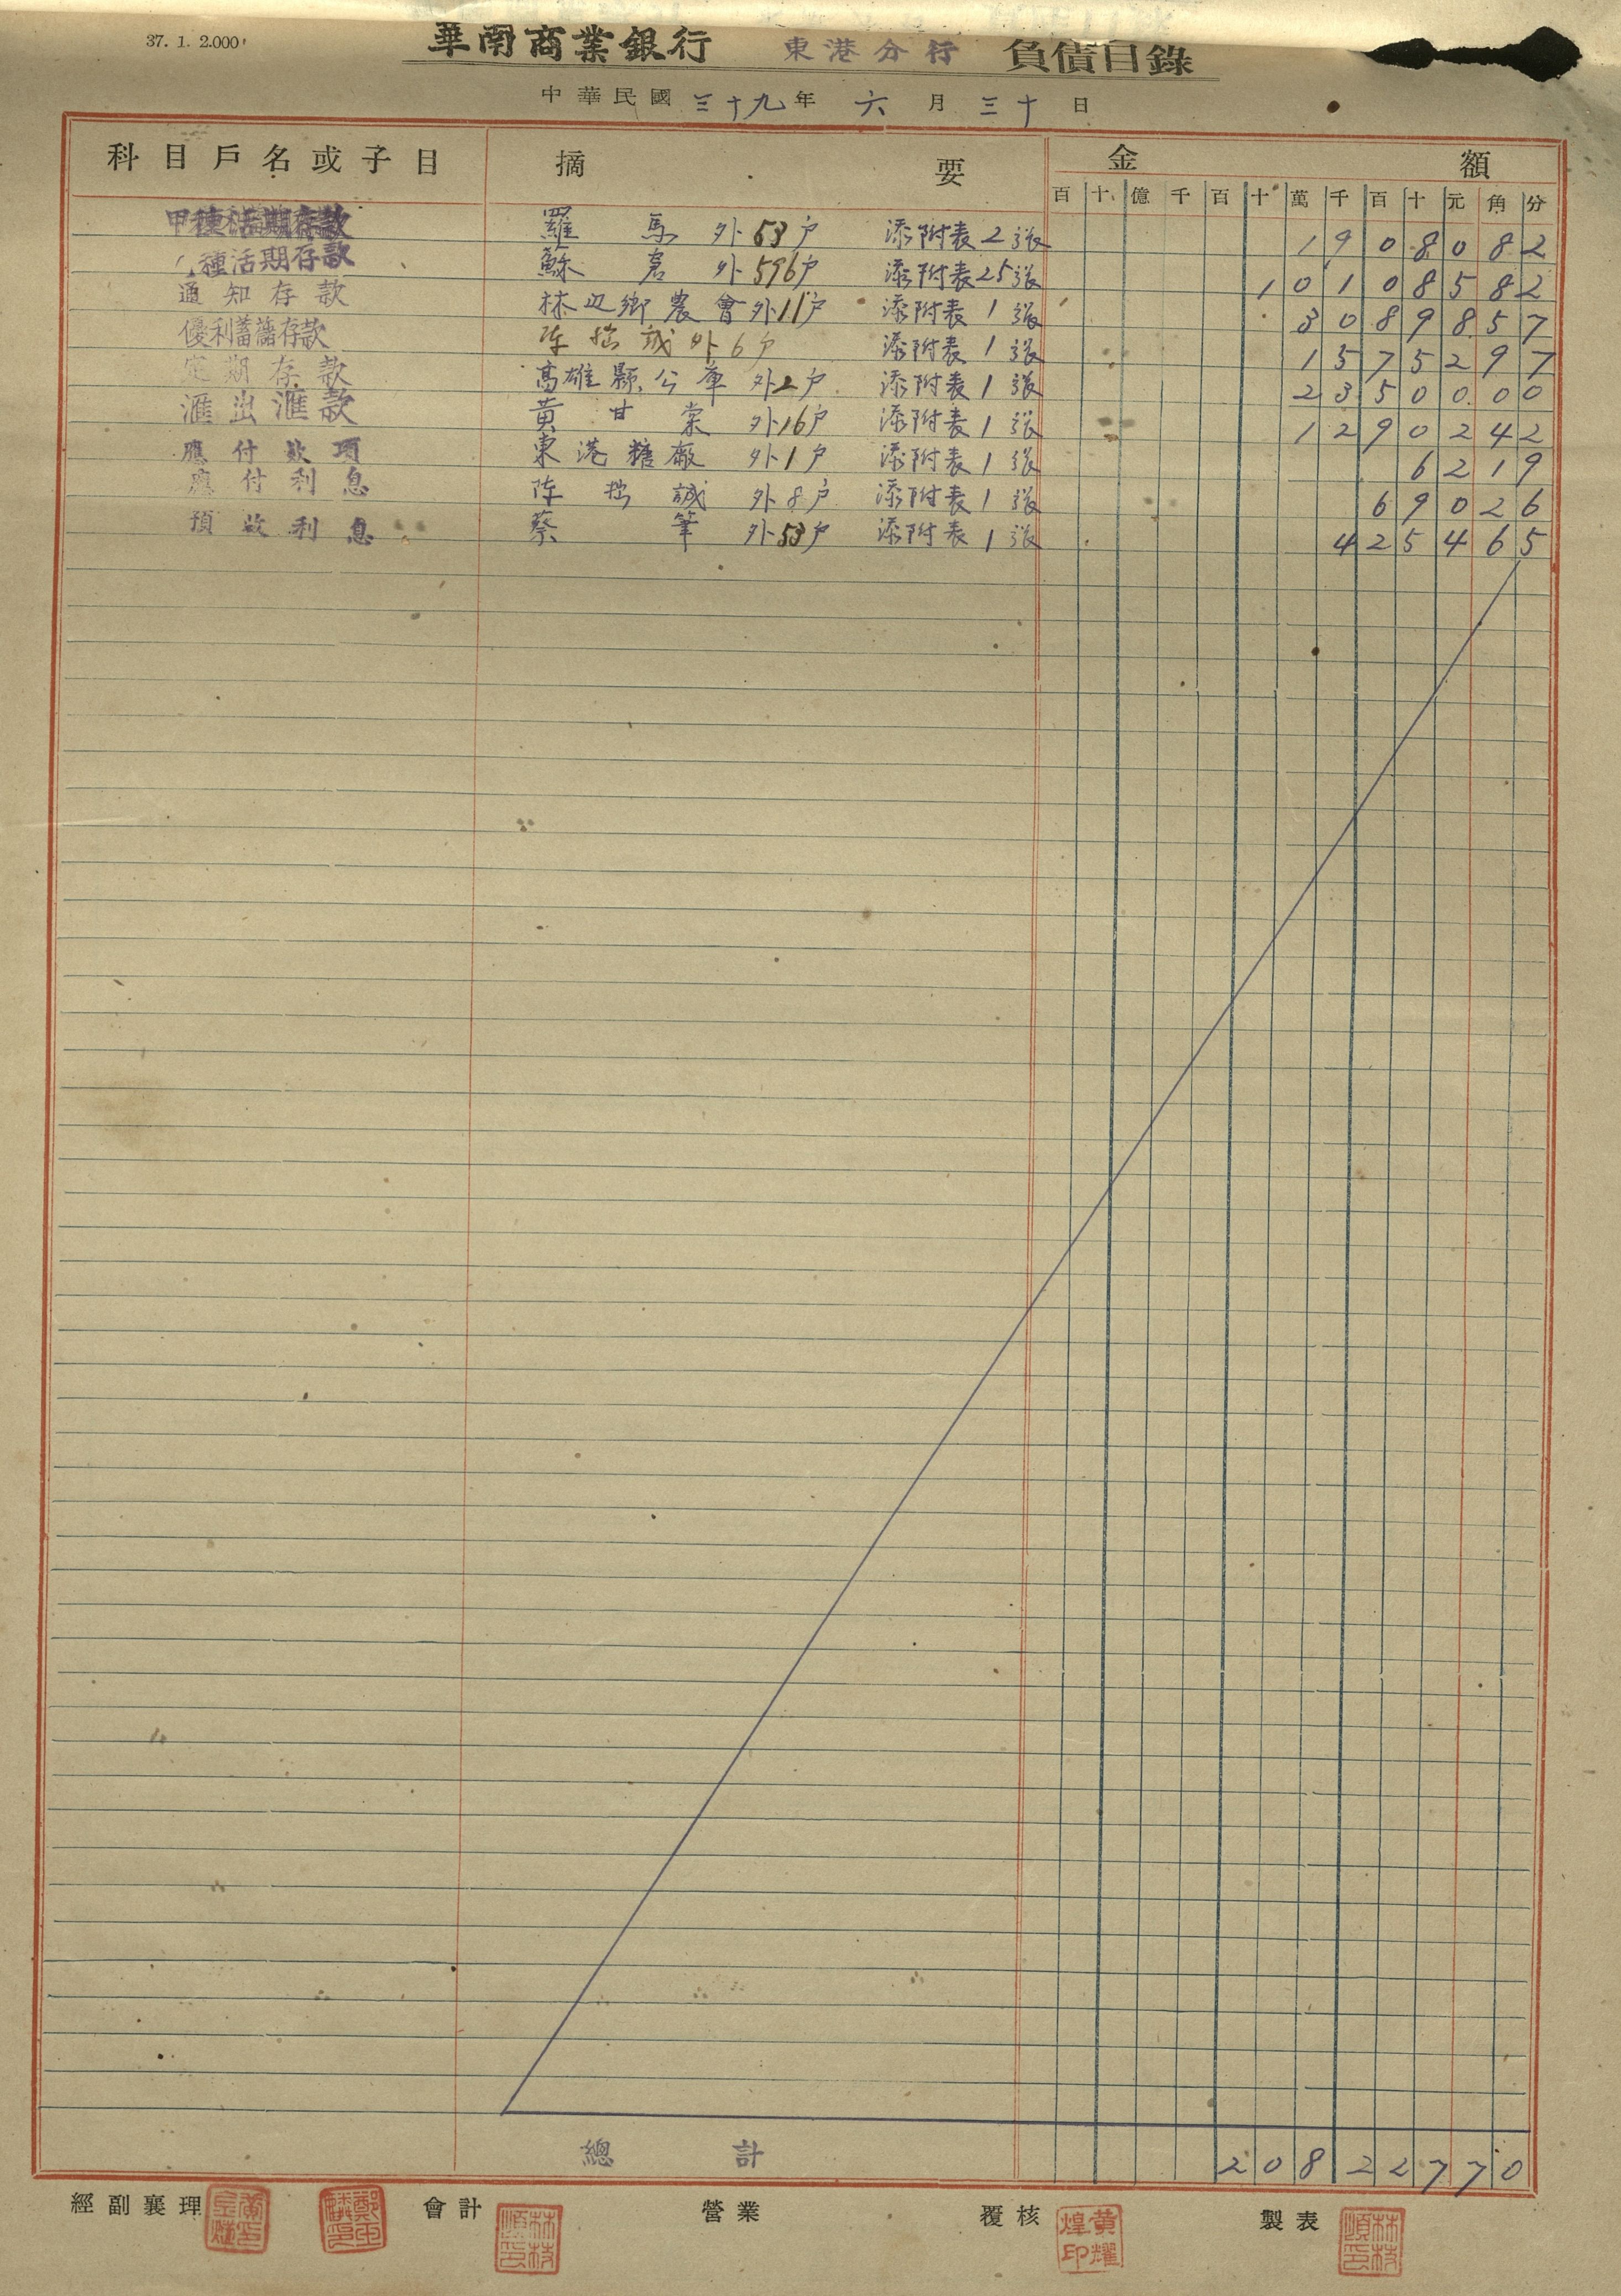 37. 1. 2.000
華南商業銀行 東港分行 負債目錄
中華民國 三十九 年 六 月 三十 日
科目戶名或子目 摘要 金額
百 十 億 千 百 十 萬 千 百 十 元 角 分
甲種活期存款 羅馬 外53户 添附表2張 1908082
種活期存款 蘇 外596户 添附表25張 101 08582
通知存款 林边鄉農會外11户 添附表1張 3089857
優利蓄儲存款 陈 誠外6户 添附表1張 1575297
定期存款 高雄縣公庫 外2户 添附表1張 2350000
滙出滙款 黄甘棠 外16户 添附表1張 1290242
應付款項 東港糖廠 外1户 添附表1張 6219
應付利息 陈 誠 外8户 添附表1張 69026
預收利息 蔡筆 外53户 添附表1張 425465
總計 20822770
經副襄理 會計 營業 覆核 黄耀煌印 製表